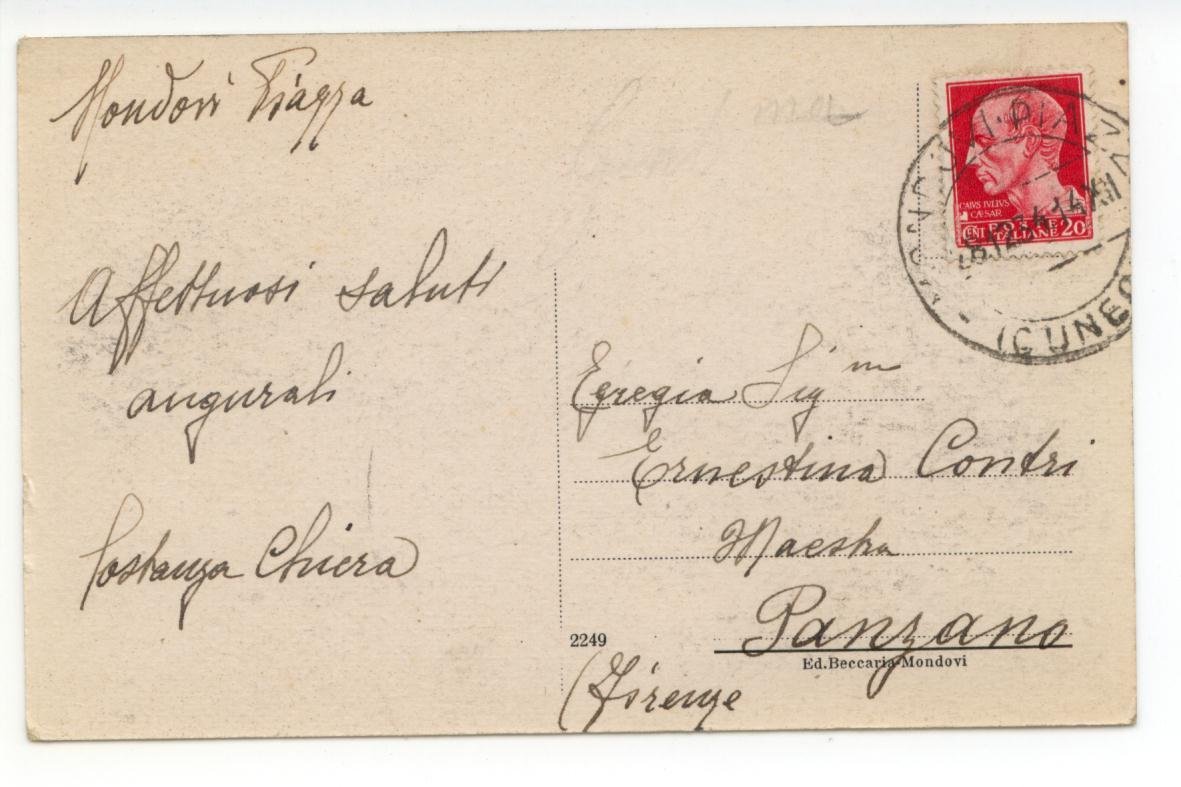 Mondovì Piazza
Affettuosi saluti
augurali
Costanza Chiera
CAIVS IVLIVS
CÆSAR
CENT POSTE
ITALIANE 20
MONDOVI·PIAZZA
(CUNEO
Egregia Sigra
Ernestina Contri
Maestra
Panzano
2249
Ed.Beccaria-Mondovi
(Firenze